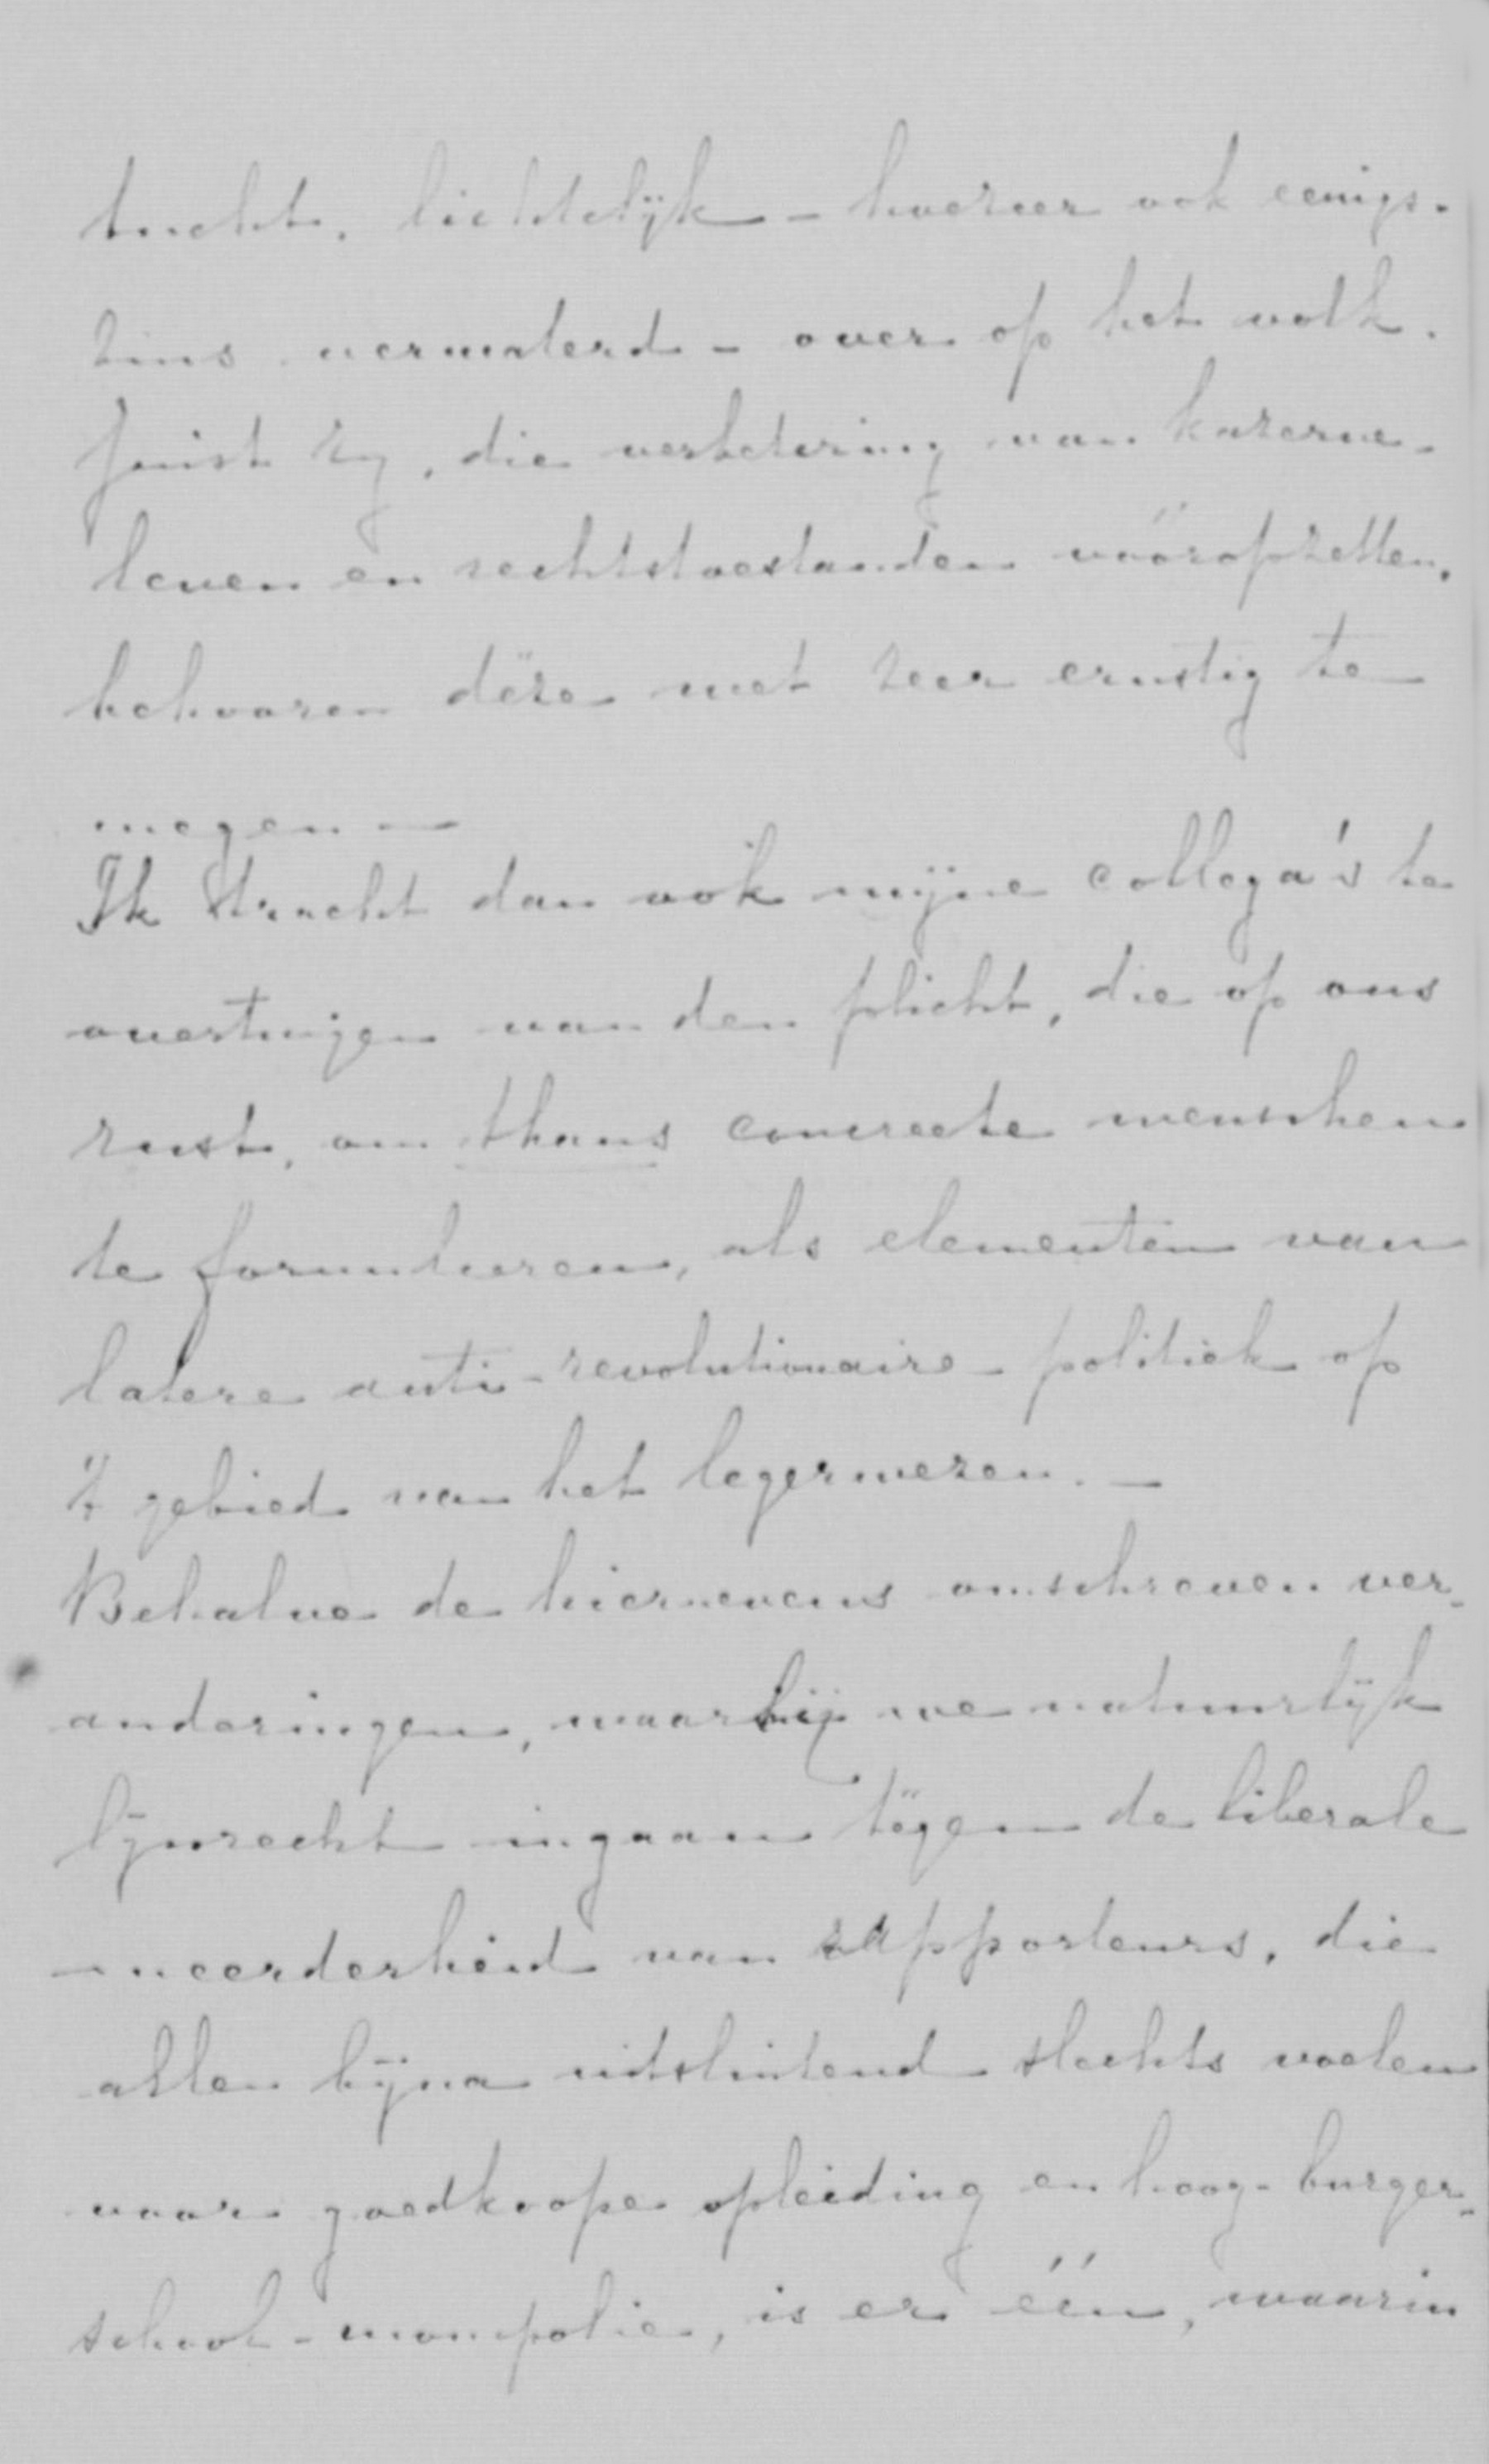 tucht, lichtelijk – hoezeer ook eenigs-
zins vermomd – over op het volk.
Juist zij, die verbetering van kazerne-
leven en rechtstoestanden vóóropzetten,
behooren déze niet zeer ernstig te
mogen —
Ik tracht dan ook mijne collega's te
overtuigen van den plicht, die op ons
rust, om thans concreete menschen
te formuleeren, als elementen van
latere anti-revolutionaire-politiek op
't gebied van het legerwezen. —
Behalve de hiernevens omschreven ver-
anderingen, waarbij we natuurlijk
lijnrecht ingaan tégen de liberale
meerderheid van rapporteurs, die
allen bijna uitsluitend slechts voelen
voor goedkoope opleiding en hoog-burger-
school-monopolie, is er één, waarin